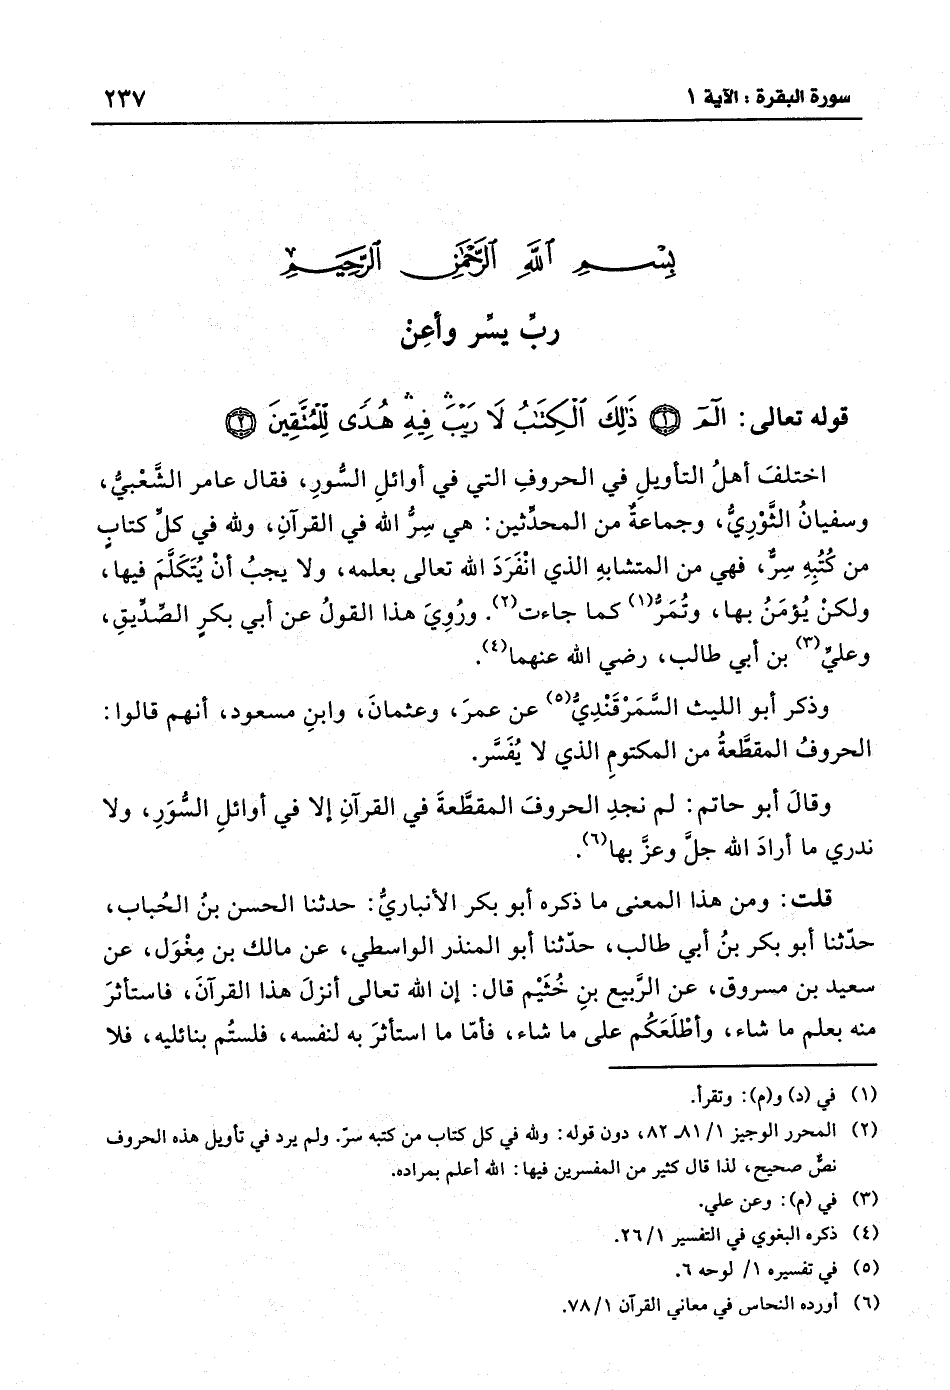 سورة البقرة : الآية ١ ٢٣٧
بِسْمِ ٱللَّهِ ٱلرَّحْمَٰنِ ٱلرَّحِيمِ
ربِّ يسِّر وأعِنْ
قوله تعالى: الٓمٓ ١ ذَٰلِكَ ٱلْكِتَٰبُ لَا رَيْبَۛ فِيهِۛ هُدًى لِّلْمُتَّقِينَ ٢
اختلفَ أهلُ التأويلِ في الحروفِ التي في أوائلِ السُّورِ، فقال عامر الشَّعْبيُّ،
وسفيانُ الثَّوْرِيُّ، وجماعةٌ من المحدِّثين: هي سِرُّ الله في القرآنِ، ولله في كلِّ كتابٍ
من كُتُبِهِ سِرٌّ، فهي من المتشابهِ الذي انْفَرَدَ الله تعالى بعلمه، ولا يجبُ أنْ يُتَكلَّمَ فيها،
ولكنْ يُؤمَنُ بها، وتُمَرُّ(١) كما جاءت(٢). ورُوِيَ هذا القولُ عن أبي بكرٍ الصِّدِّيقِ،
وعليِّ(٣) بن أبي طالب، رضي الله عنهما(٤).
وذكر أبو الليث السَّمَرْقَنْدِيُّ(٥) عن عمرَ، وعثمانَ، وابنِ مسعود، أنهم قالوا:
الحروفُ المقطَّعةُ من المكتومِ الذي لا يُفَسَّر.
وقالَ أبو حاتم: لم نجدِ الحروفَ المقطَّعةَ في القرآنِ إلا في أوائلِ السُّوَرِ، ولا
ندري ما أرادَ الله جلَّ وعزَّ بها(٦).
قلت: ومن هذا المعنى ما ذكره أبو بكر الأنباريُّ: حدثنا الحسن بنُ الحُباب،
حدّثنا أبو بكر بنُ أبي طالب، حدّثنا أبو المنذر الواسطي، عن مالك بن مِغْوَل، عن
سعيد بن مسروق، عن الرَّبيع بنِ خُثَيْم قال: إن الله تعالى أنزلَ هذا القرآنَ، فاستأثرَ
منه بعلم ما شاء، وأطْلَعَكُم على ما شاء، فأمّا ما استأثرَ به لنفسه، فلستُم بنائليه، فلا
(١) في (د) و(م): وتقرأ.
(٢) المحرر الوجيز ١/ ٨١ـ ٨٢، دون قوله: ولله في كل كتاب من كتبه سرّ. ولم يرد في تأويل هذه الحروف
نصٌّ صحيح، لذا قال كثير من المفسرين فيها: الله أعلم بمراده.
(٣) في (م): وعن علي.
(٤) ذكره البغوي في التفسير ١/ ٢٦.
(٥) في تفسيره ١/ لوحه ٦.
(٦) أورده النحاس في معاني القرآن ١/ ٧٨.